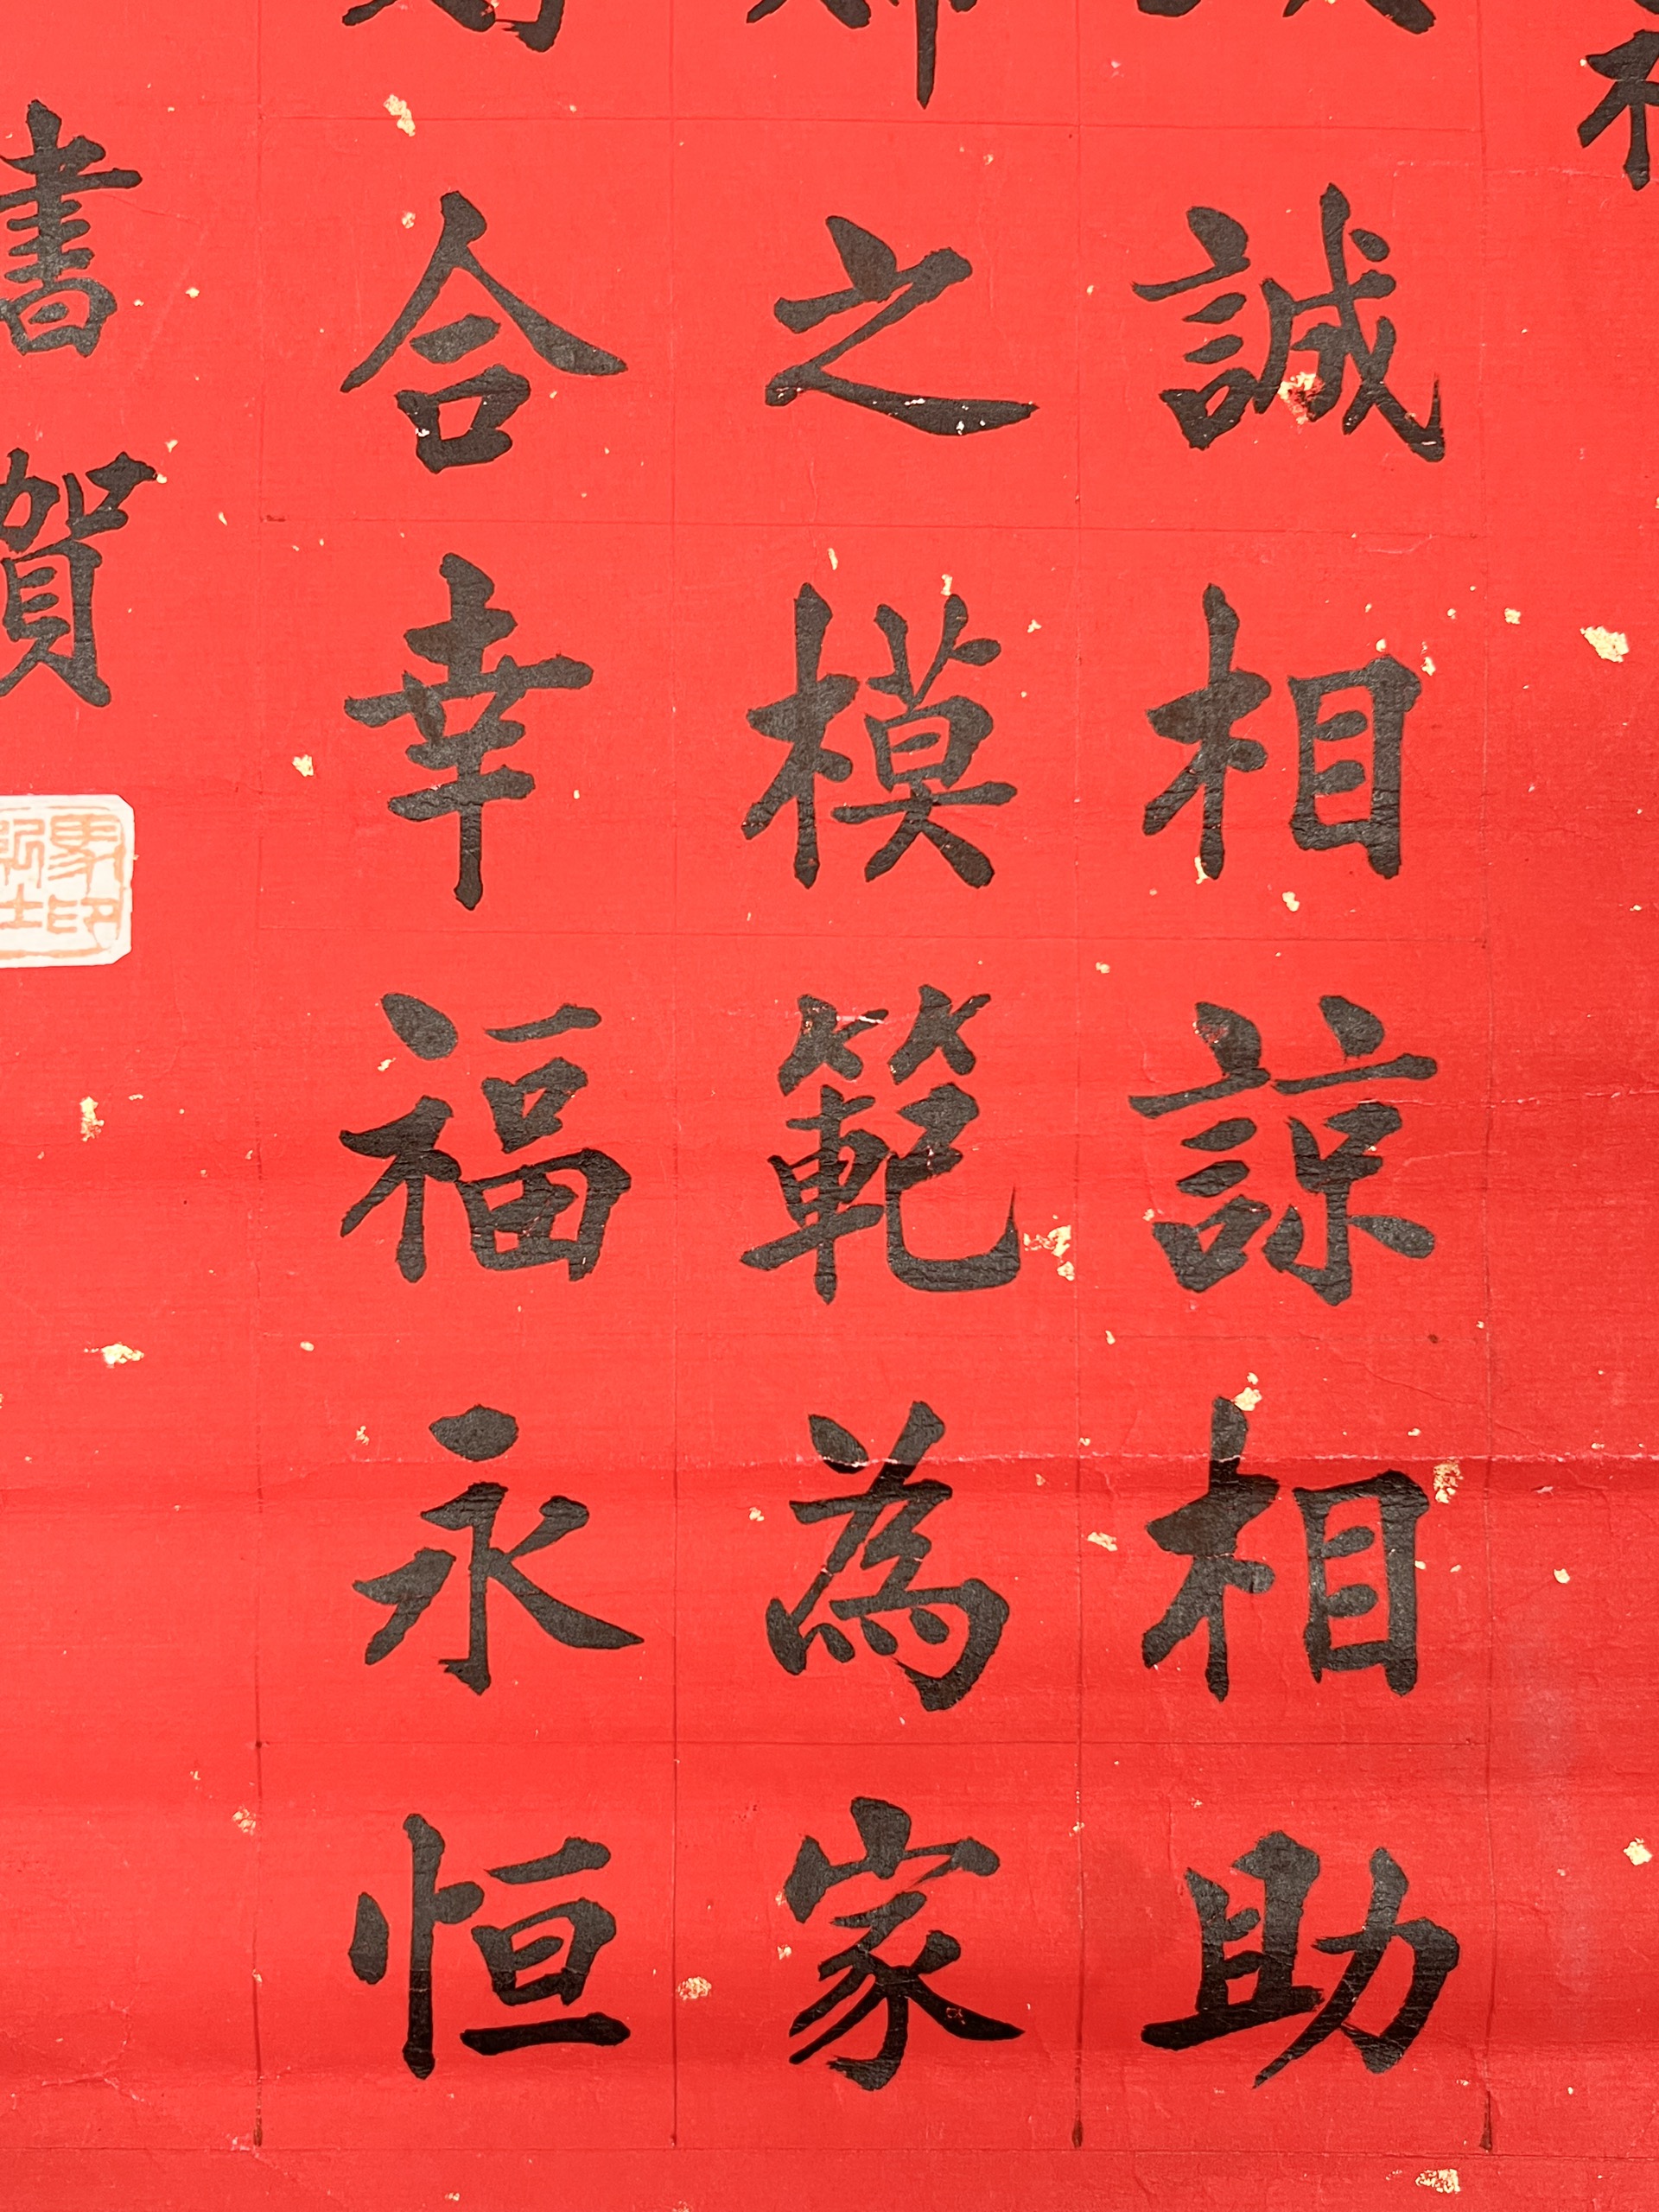 誠相諒相助
之模範為家
合幸福永恒
書賀